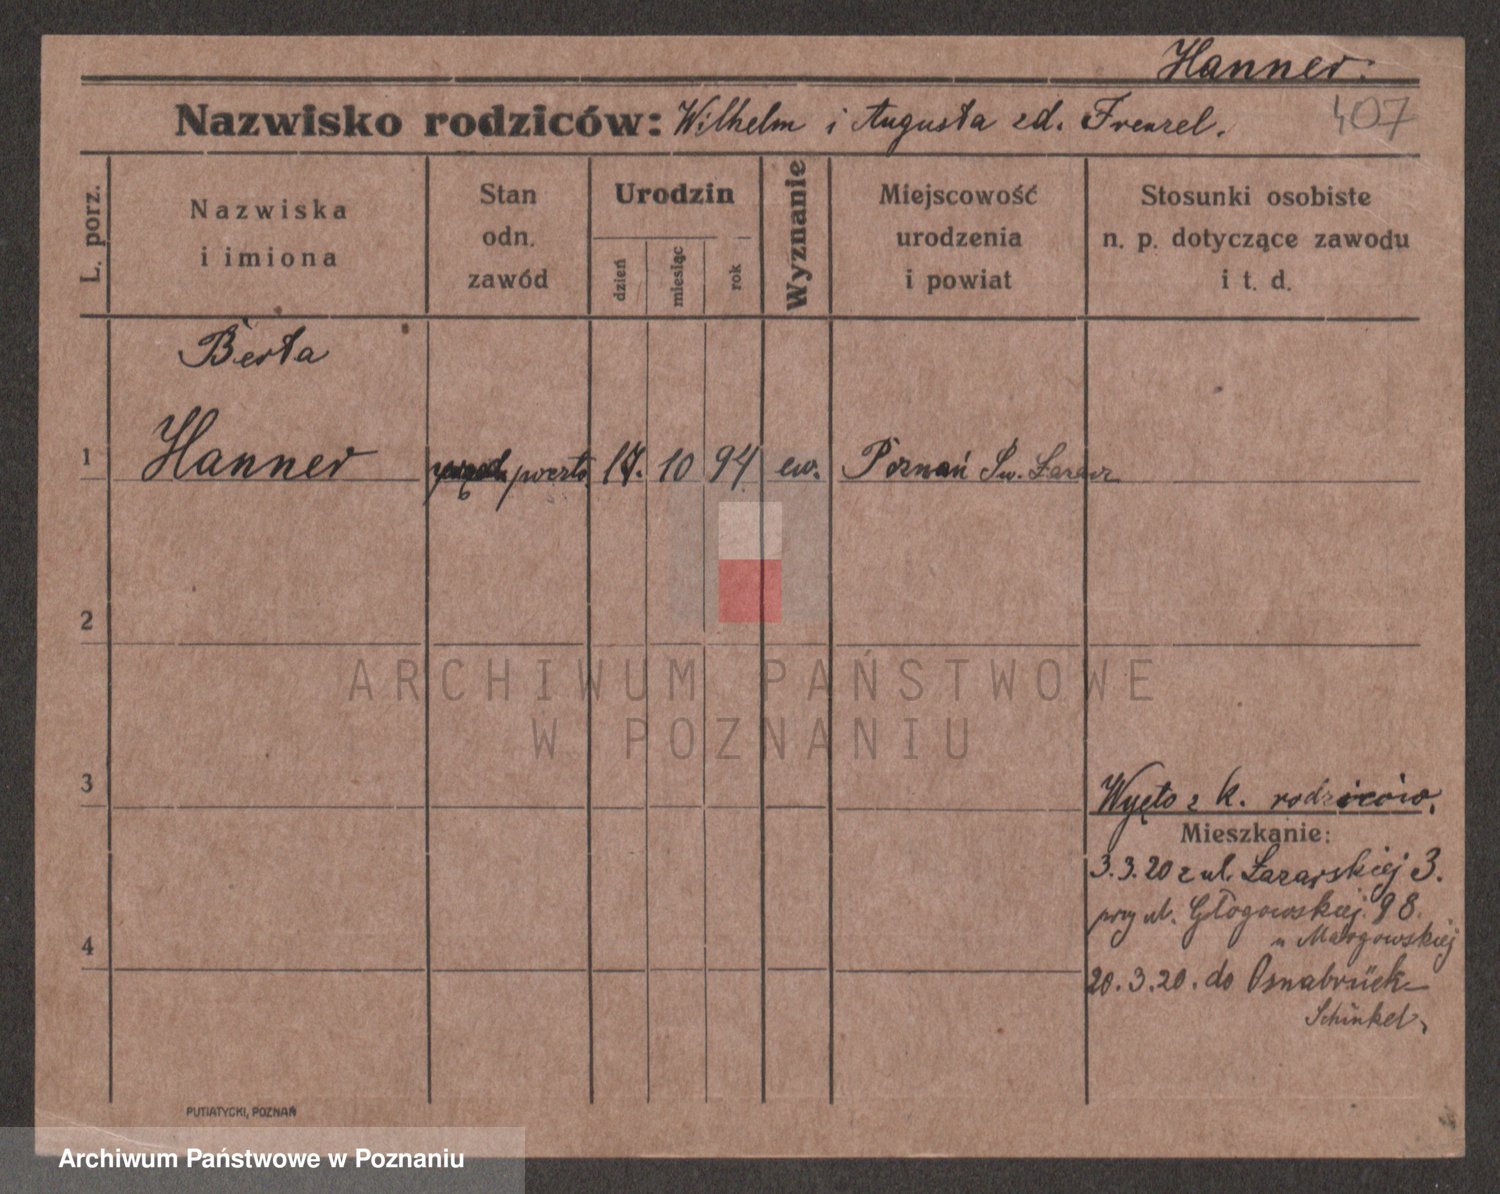 Hanner.
Nazwisko rodziców: Wilhelm i Augusta zd. Frenzel.
407
L. porz.
Nazwiska
i imiona
Stan
odn.
zawód
Urodzin
dzień
miesiąc
rok
Wyznanie
Miejscowość
urodzenia
i powiat
Stosunki osobiste
n. p. dotyczące zawodu
i t. d.
Berta
1 Hanner 17. 10 94 ew. Poznań Św. Łazarz
2
ARCHIWUM PAŃSTWOWE
W POZNANIU
3
Wyjęto z k. rodziców.
Mieszkanie:
3.3.20 z ul. Łazarskiej 3.
przy ul. Głogowskiej 98.
4
20.3.20. do Osnabrück
Schinkel
PUTIATYCKI, POZNAŃ
Archiwum Państwowe w Poznaniu